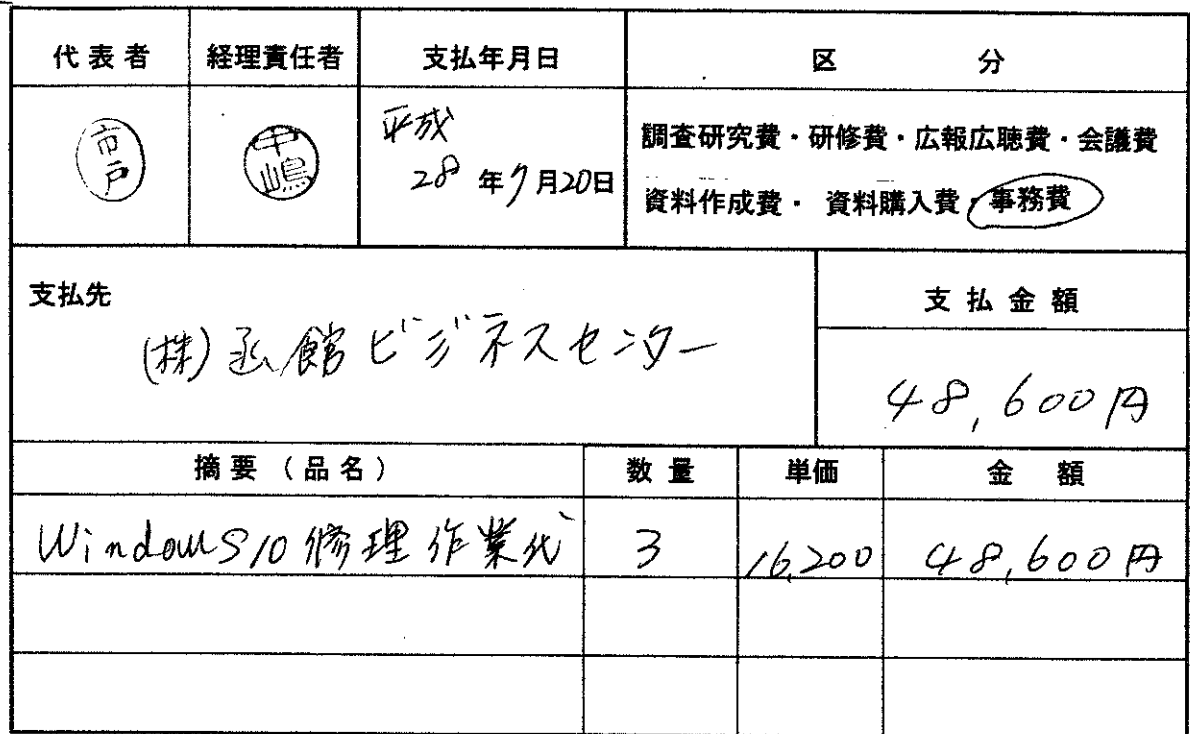 代表者 経理責任者 支払年月日 区 分
市戸 中嶋 平成
28年7月20日
調査研究費・研修費・広報広聴費・会議費
資料作成費・ 資料購入費・事務費
支払先 支払金額
(株)函館ビジネスセンター
48,600円
摘要(品名) 数量 単価 金 額
Windows10修理作業代 3 16,200 48,600円